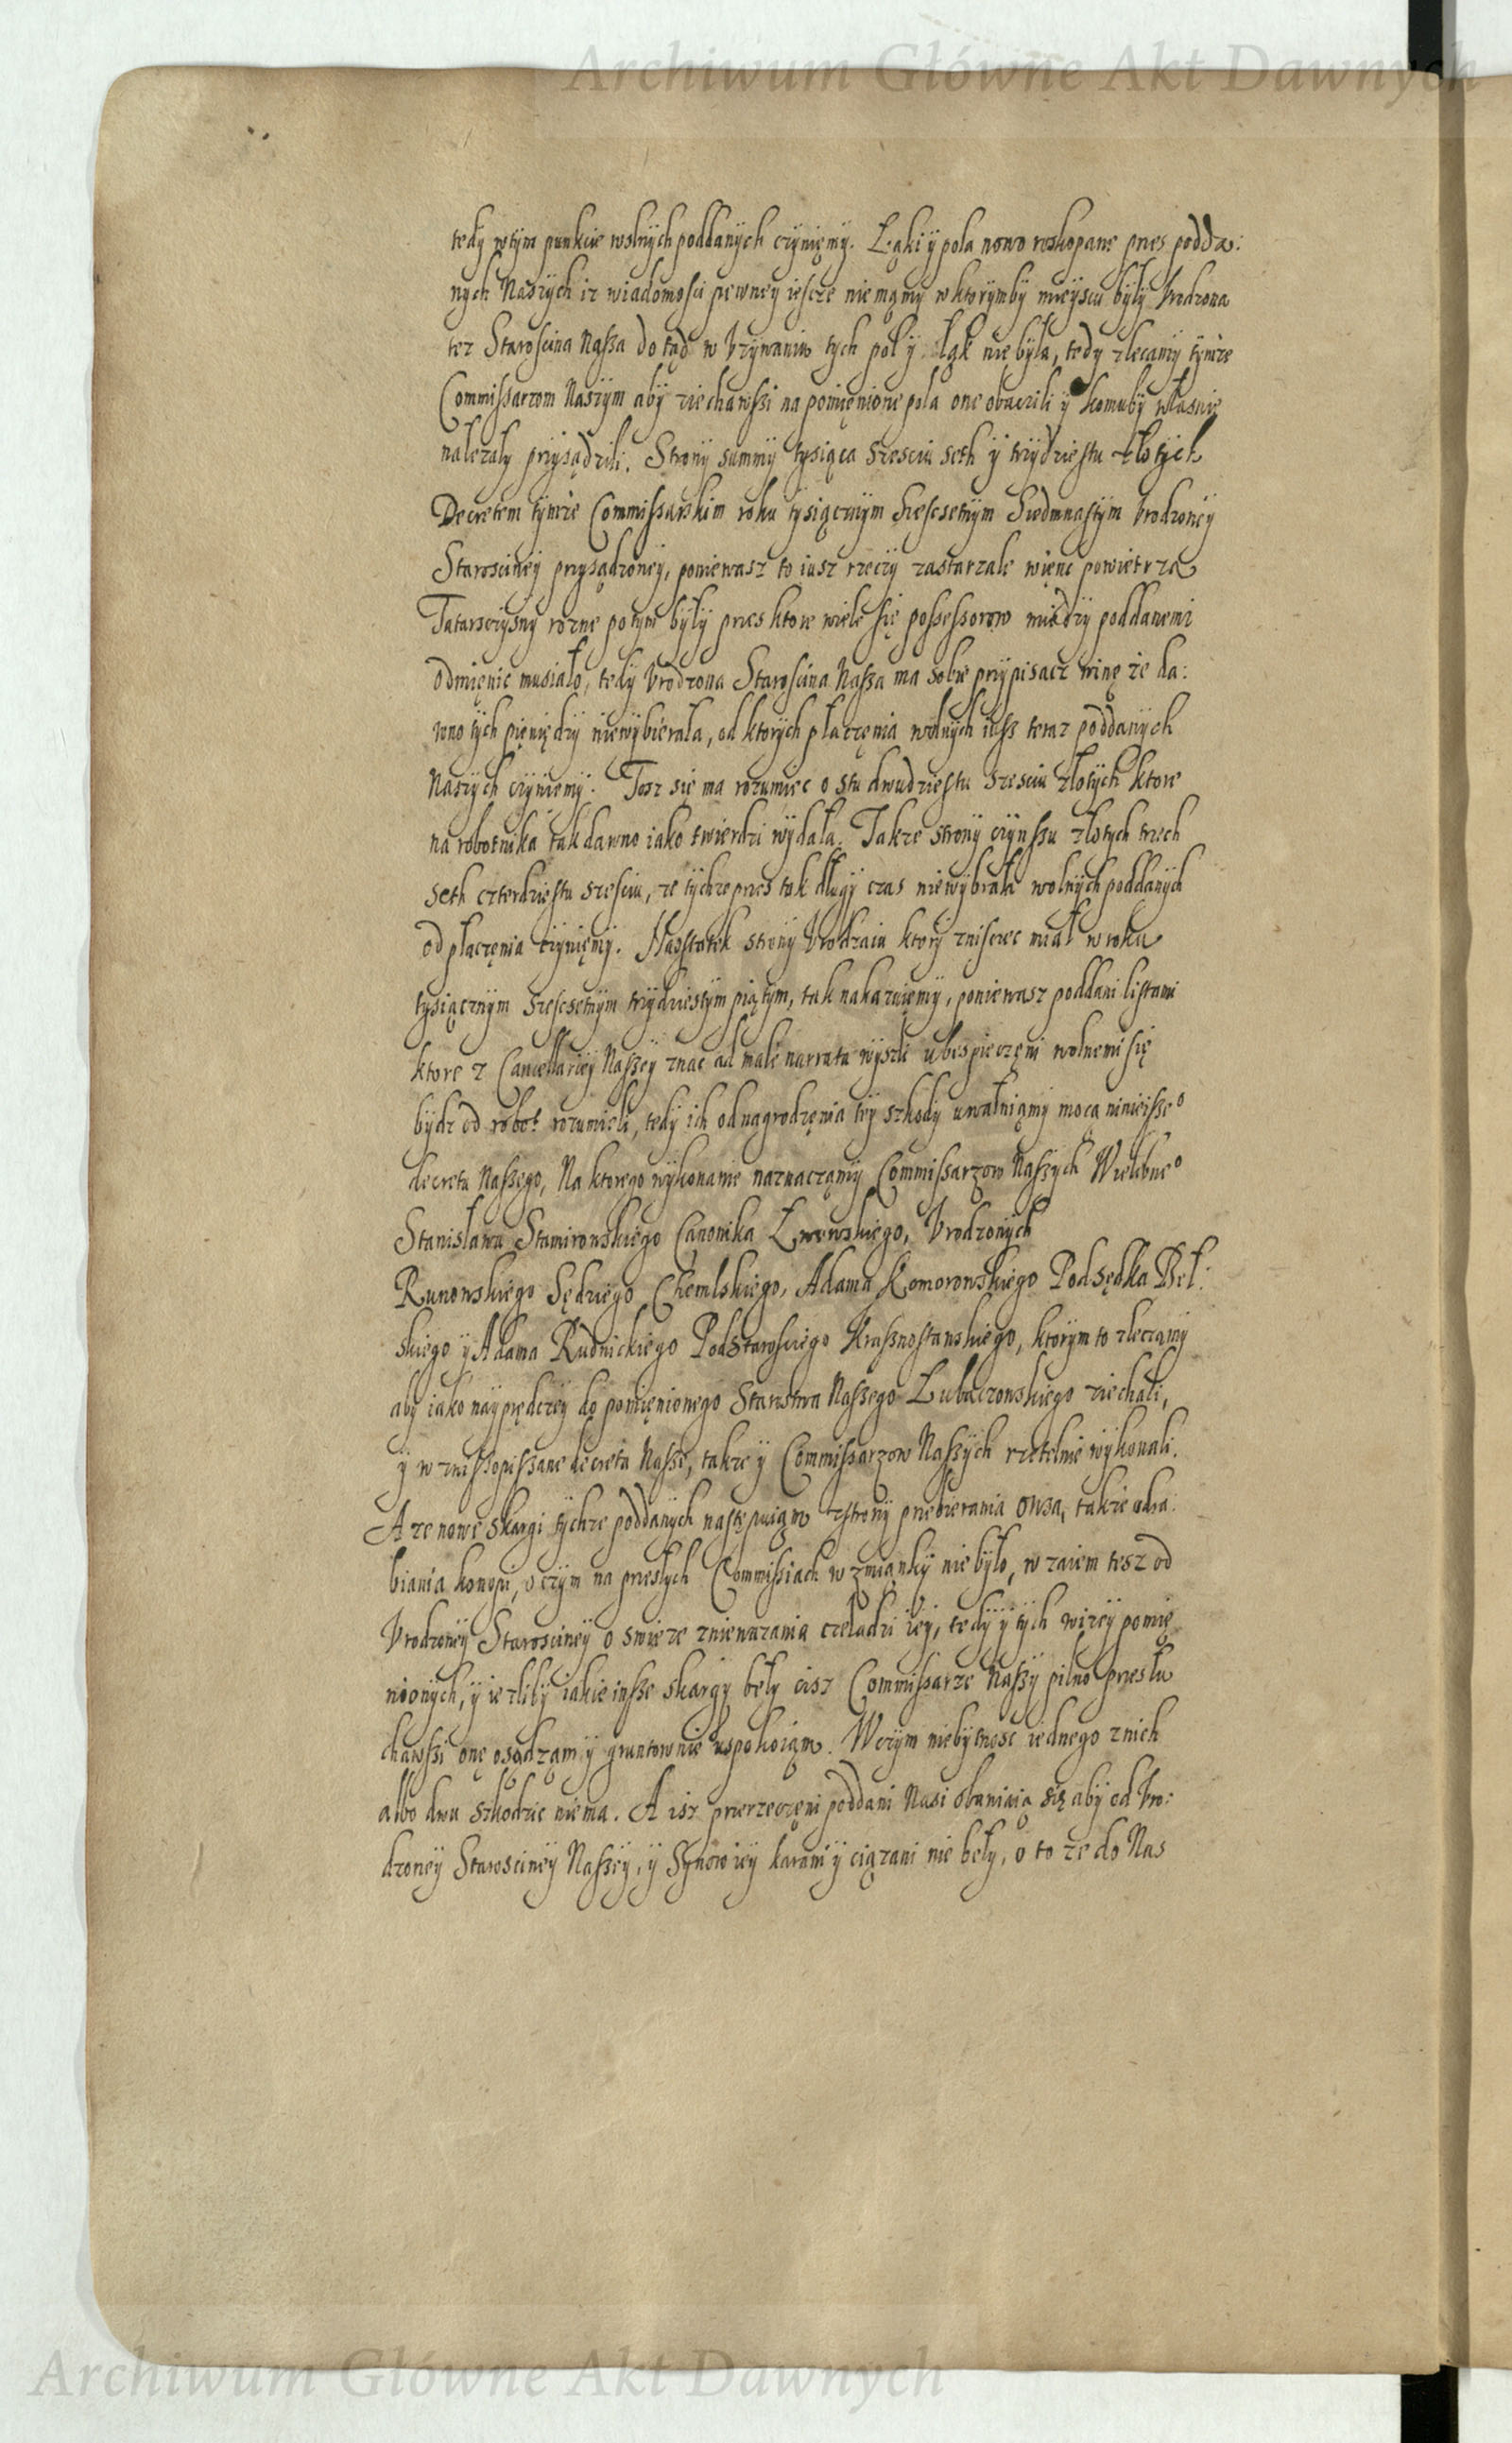 Archiwum Główne Akt Dawnych
tedy wtym punkcie wolnych poddanych czynięmy. Łąki y pola nowo roskopane przes podda:
nych Naszych iz wiadomosci pewney iescze niemąmy wktorymby mieyscu były Vrodzona
tez Starosćina Nasza do tąd w Vzywaniu tych pol y łąk nie była, tedy zlecamy tymze
Commissarzom Naszym aby ziechawszi na pomięnione pola one obaczili y komuby własnie
nalezały przysądzili. Strony summy tysiąca szesciu seth y trzydziestu złotych
Decretem tymze Commissarskim roku tysiącznym szescsetnym siedmnastym Vrodzoney
Starosciney przysądzoney, poniewasz to iusz rzeczy zastarzałe więnc powietrza
Tatarsczyzny rozne potym były przes ktore wiele się possessorow między poddanemi
odmięnic musiało, tedy Vrodzona Starosćina Nasza ma sobie przypisacz winę że da:
wno tych pięniędzy niewybierała, od ktorych płaczęnia wolnych iusz teraz poddanych
Naszych czyniemy. Tosz się ma rozumiec o stu dwudziestu szesciu złotych ktore
na robotnika tak dawno iako twierdzi wydała. Takze strony czynszu złotych trzech
seth czterdziestu szesciu, ze tychze przes tak długy czas niewybrała wolnych poddanych
od płaczęnia czynięmy. Naostatek strony Vrodzaiu ktory znisczec miał w roku
tysiącznym szescsetnym trzydziestym piątym, tak nakazuięmy, poniewasz poddani listami
ktore z Cancellariey Naszey znac ad male narrata wyszli ubespieczęni wolnemi się
bydz od robot rozumieli, tedy ich od nagrodzęnia tey szkody uwalniąmy mocą ninieisze⁰
decretu Naszego, Na ktorego wykonanie naznaczamy Commissarzow Naszych Wielebne⁰
Stanisława Stamirowskiego Canonika Lwowskiego, Vrodzonych
Runowskiego Sędziego Chełmskiego, Adama Komorowskiego Podsędka Beł:
skiego y Adama Rudnickiego Podstarosciego Krasnostawskiego, ktorym to zleczamy
aby iako nayprędczey do pomięnionego Starostwa Naszego Lubaczowskiego ziechali,
y wzwyszopiszane decreta Nasze, takze y Commissarzow Naszych rzetelnie wykonali.
A ze nowe skargi tychze poddanych następuiąm zstrony przebierania owsa, takze odra:
biania konopi, o czym na przeszłych Commissiach wzmianky nie było, wzaiem tesz od
Vrodzoney Starosciney o swieze zniewazania czeladzi iey, tedy y tych wizey pomię
nionych, y iezliby iakie insze skargy beły cisz Commissarze Naszy pilno przesłu
chawszi onę osądząm y gruntownie uspokoiąm. Wczym niebytnosc iednego znich
albo dwu szkodzic niema. A isz przerzeczęni poddani Nasi obawiaią się aby od Vro:
dzoney Starosciney Naszey, y Synow iey karani y ciązani nie beły, o to ze do Nas
Archiwum Główne Akt Dawnych